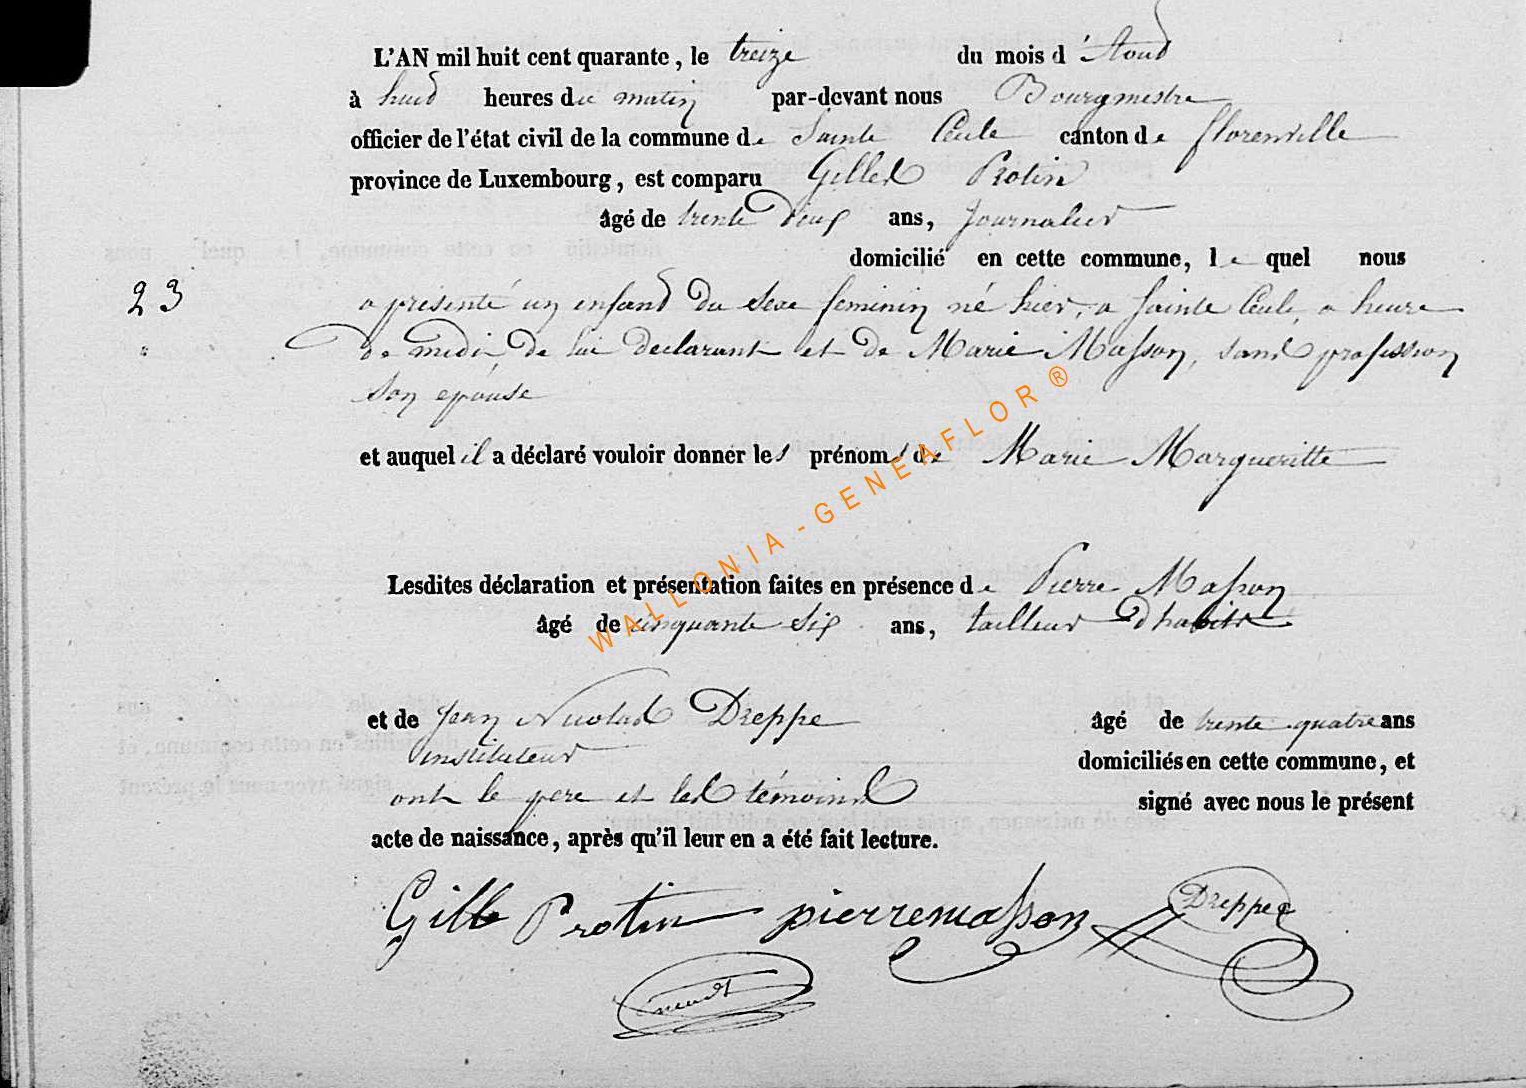 L'AN mil huit cent quarante, le treize du mois d'Aoud
à huid heures du matin par-devant nous Bourgmestre
officier de l'état civil de la commune de Sainte Cécile canton de florenville
province de Luxembourg, est comparu Gilles Protin
âgé de trente deux ans, Journalier
domicilié en cette commune, le quel nous
23 a présenté un enfand du sexe feminin né hier, a Sainte Cécile, a heure
de midi de lui declarant et de Marie Masson, sans profession
son epouse
et auquel il a déclaré vouloir donner les prénoms de Marie Margueritte
Lesdites déclaration et présentation faites en présence de Pierre Masson
âgé de cinquante six ans, tailleur d'habits
et de Jean Nicolas Dreppe âgé de trente quatre ans
instituteur domiciliés en cette commune, et
ont le pere et les témoins signé avec nous le présent
acte de naissance, après qu'il leur en a été fait lecture.
Gille Protin pierre masson Dreppe
WALLONIA - GENEAFLOR ®